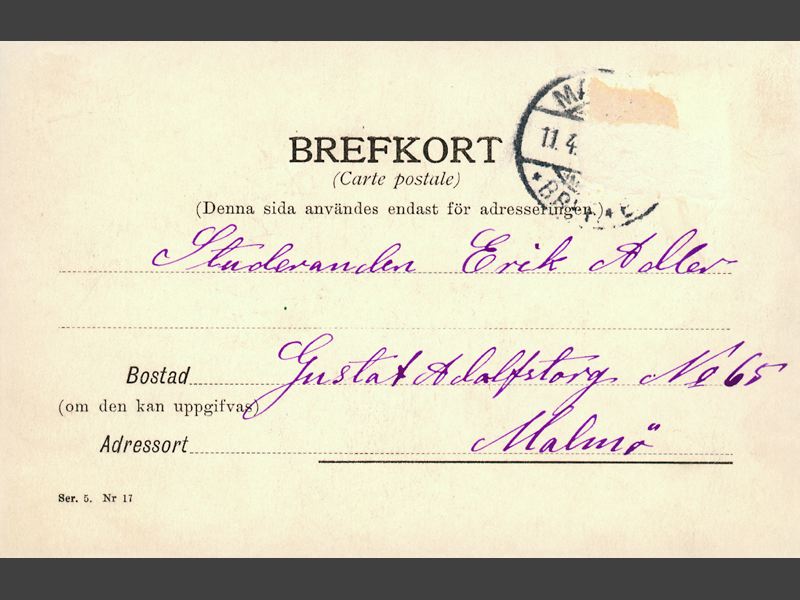 BREFKORT
(Carte postale)
(Denna sida användes endast för adresseringen.)
11. 4.
Studeranden Erik Adler
Bostad Gustaf Adolfstorg No 65
(om den kan uppgifvas)
Adressort Malmö
Ser. 5. Nr 17